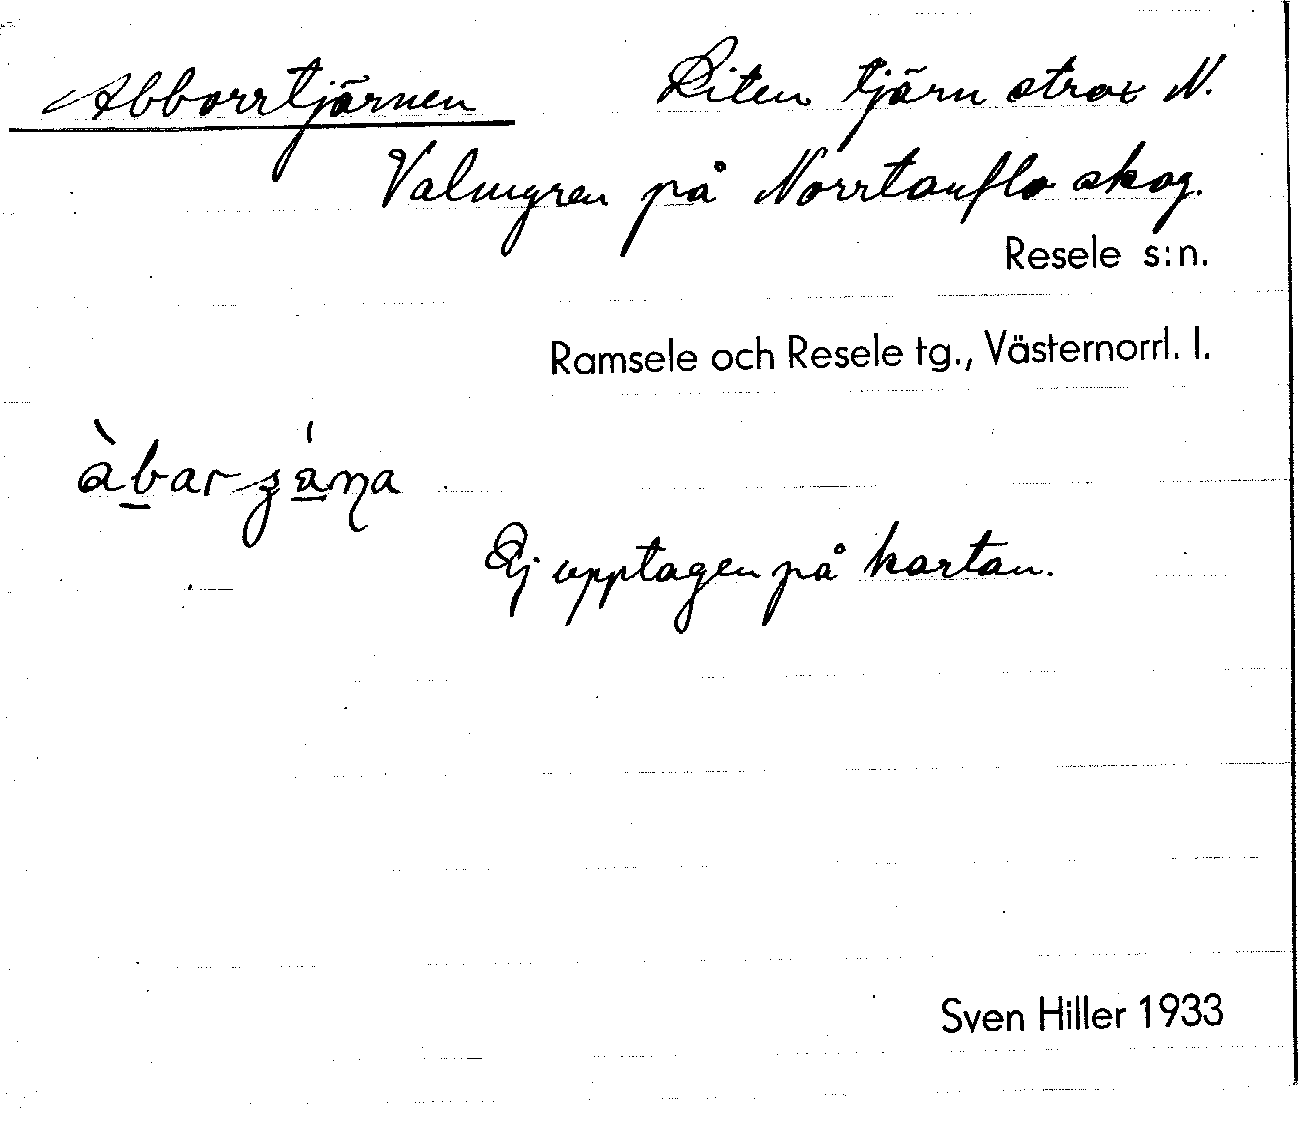 Abborrtjärnen Liten tjärn strax N.
Valmyren på Norrtanflo skog.
Resele s:n.
Ramsele och Resele tg., Västernorrl. l.
Ej upptagen på kartan.
Sven Hiller 1933